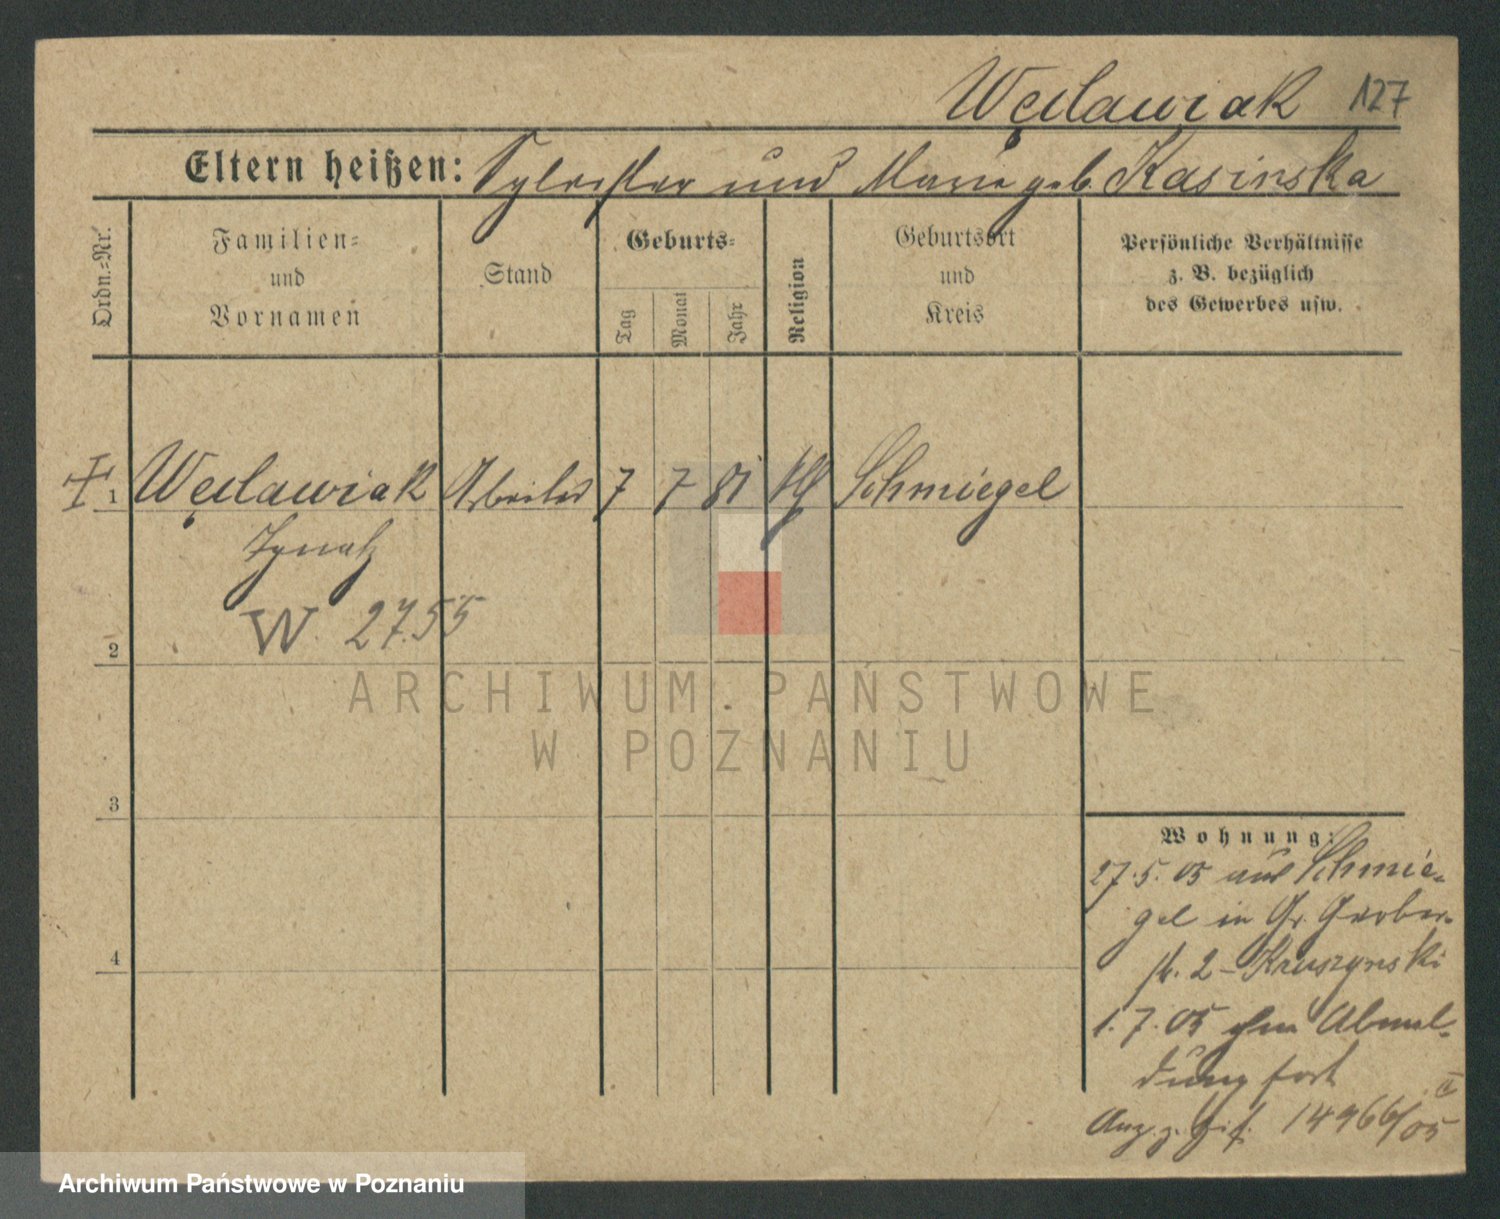 Węclawiak 127
Eltern heißen: Sylvester und Marie geb. Kasinska
Ordn.-Nr.
Familien-
und
Vornamen
Stand
Geburts-
Tag
Monat
Jahr
Religion
Geburtsort
und
Kreis
Persönliche Verhältnisse
z. B. bezüglich
des Gewerbes usw.
1 Węclawiak Arbeiter 7 7 81 kth Schmiegel
Ignatz
W. 27.5.5
2
ARCHIWUM PAŃSTWOWE
W POZNANIU
3
Wohnung:
27.5.05 aus Schmie-
gel in Gr. Gerber-
str. 2 - Kruszynski
4
1.7.05 ohne Abmel-
dung fort
14966/05
Archiwum Państwowe w Poznaniu